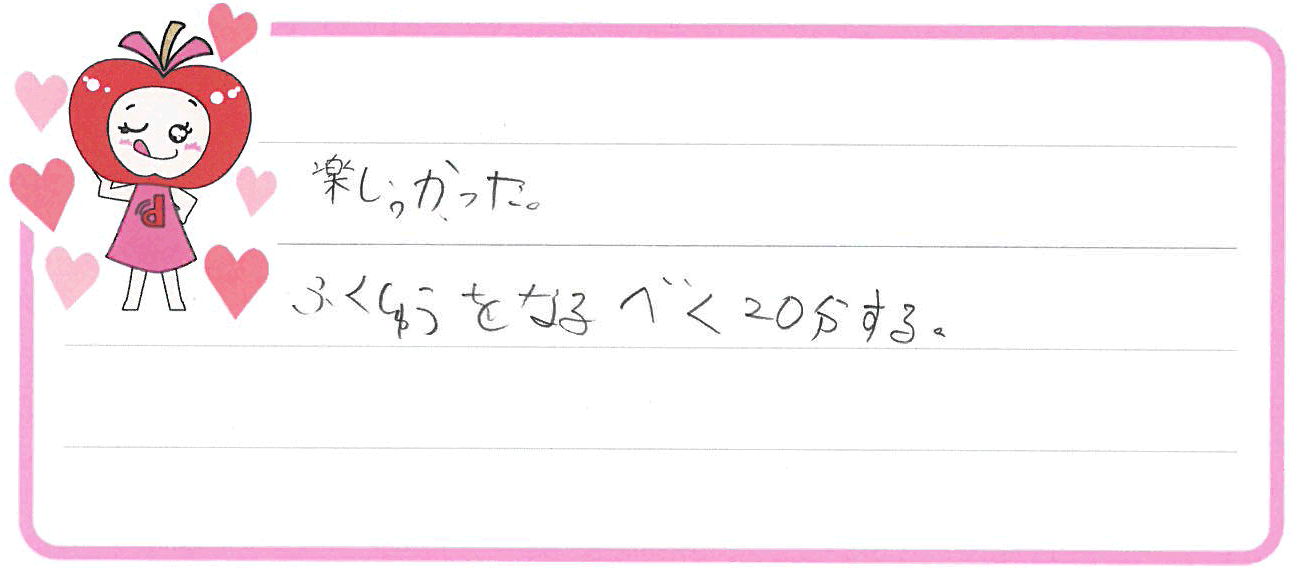 楽しかった。
ふくしゅうをなるべく20分する。